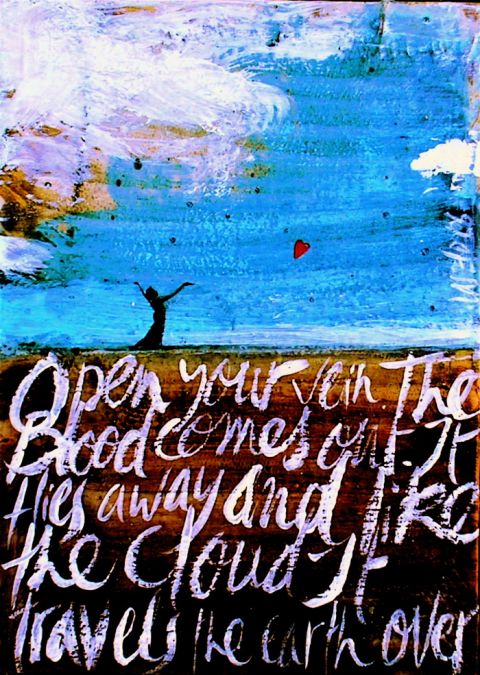 Open your vein. The
Blood comes out. It
flies away and like
the cloud It
travels the earth over